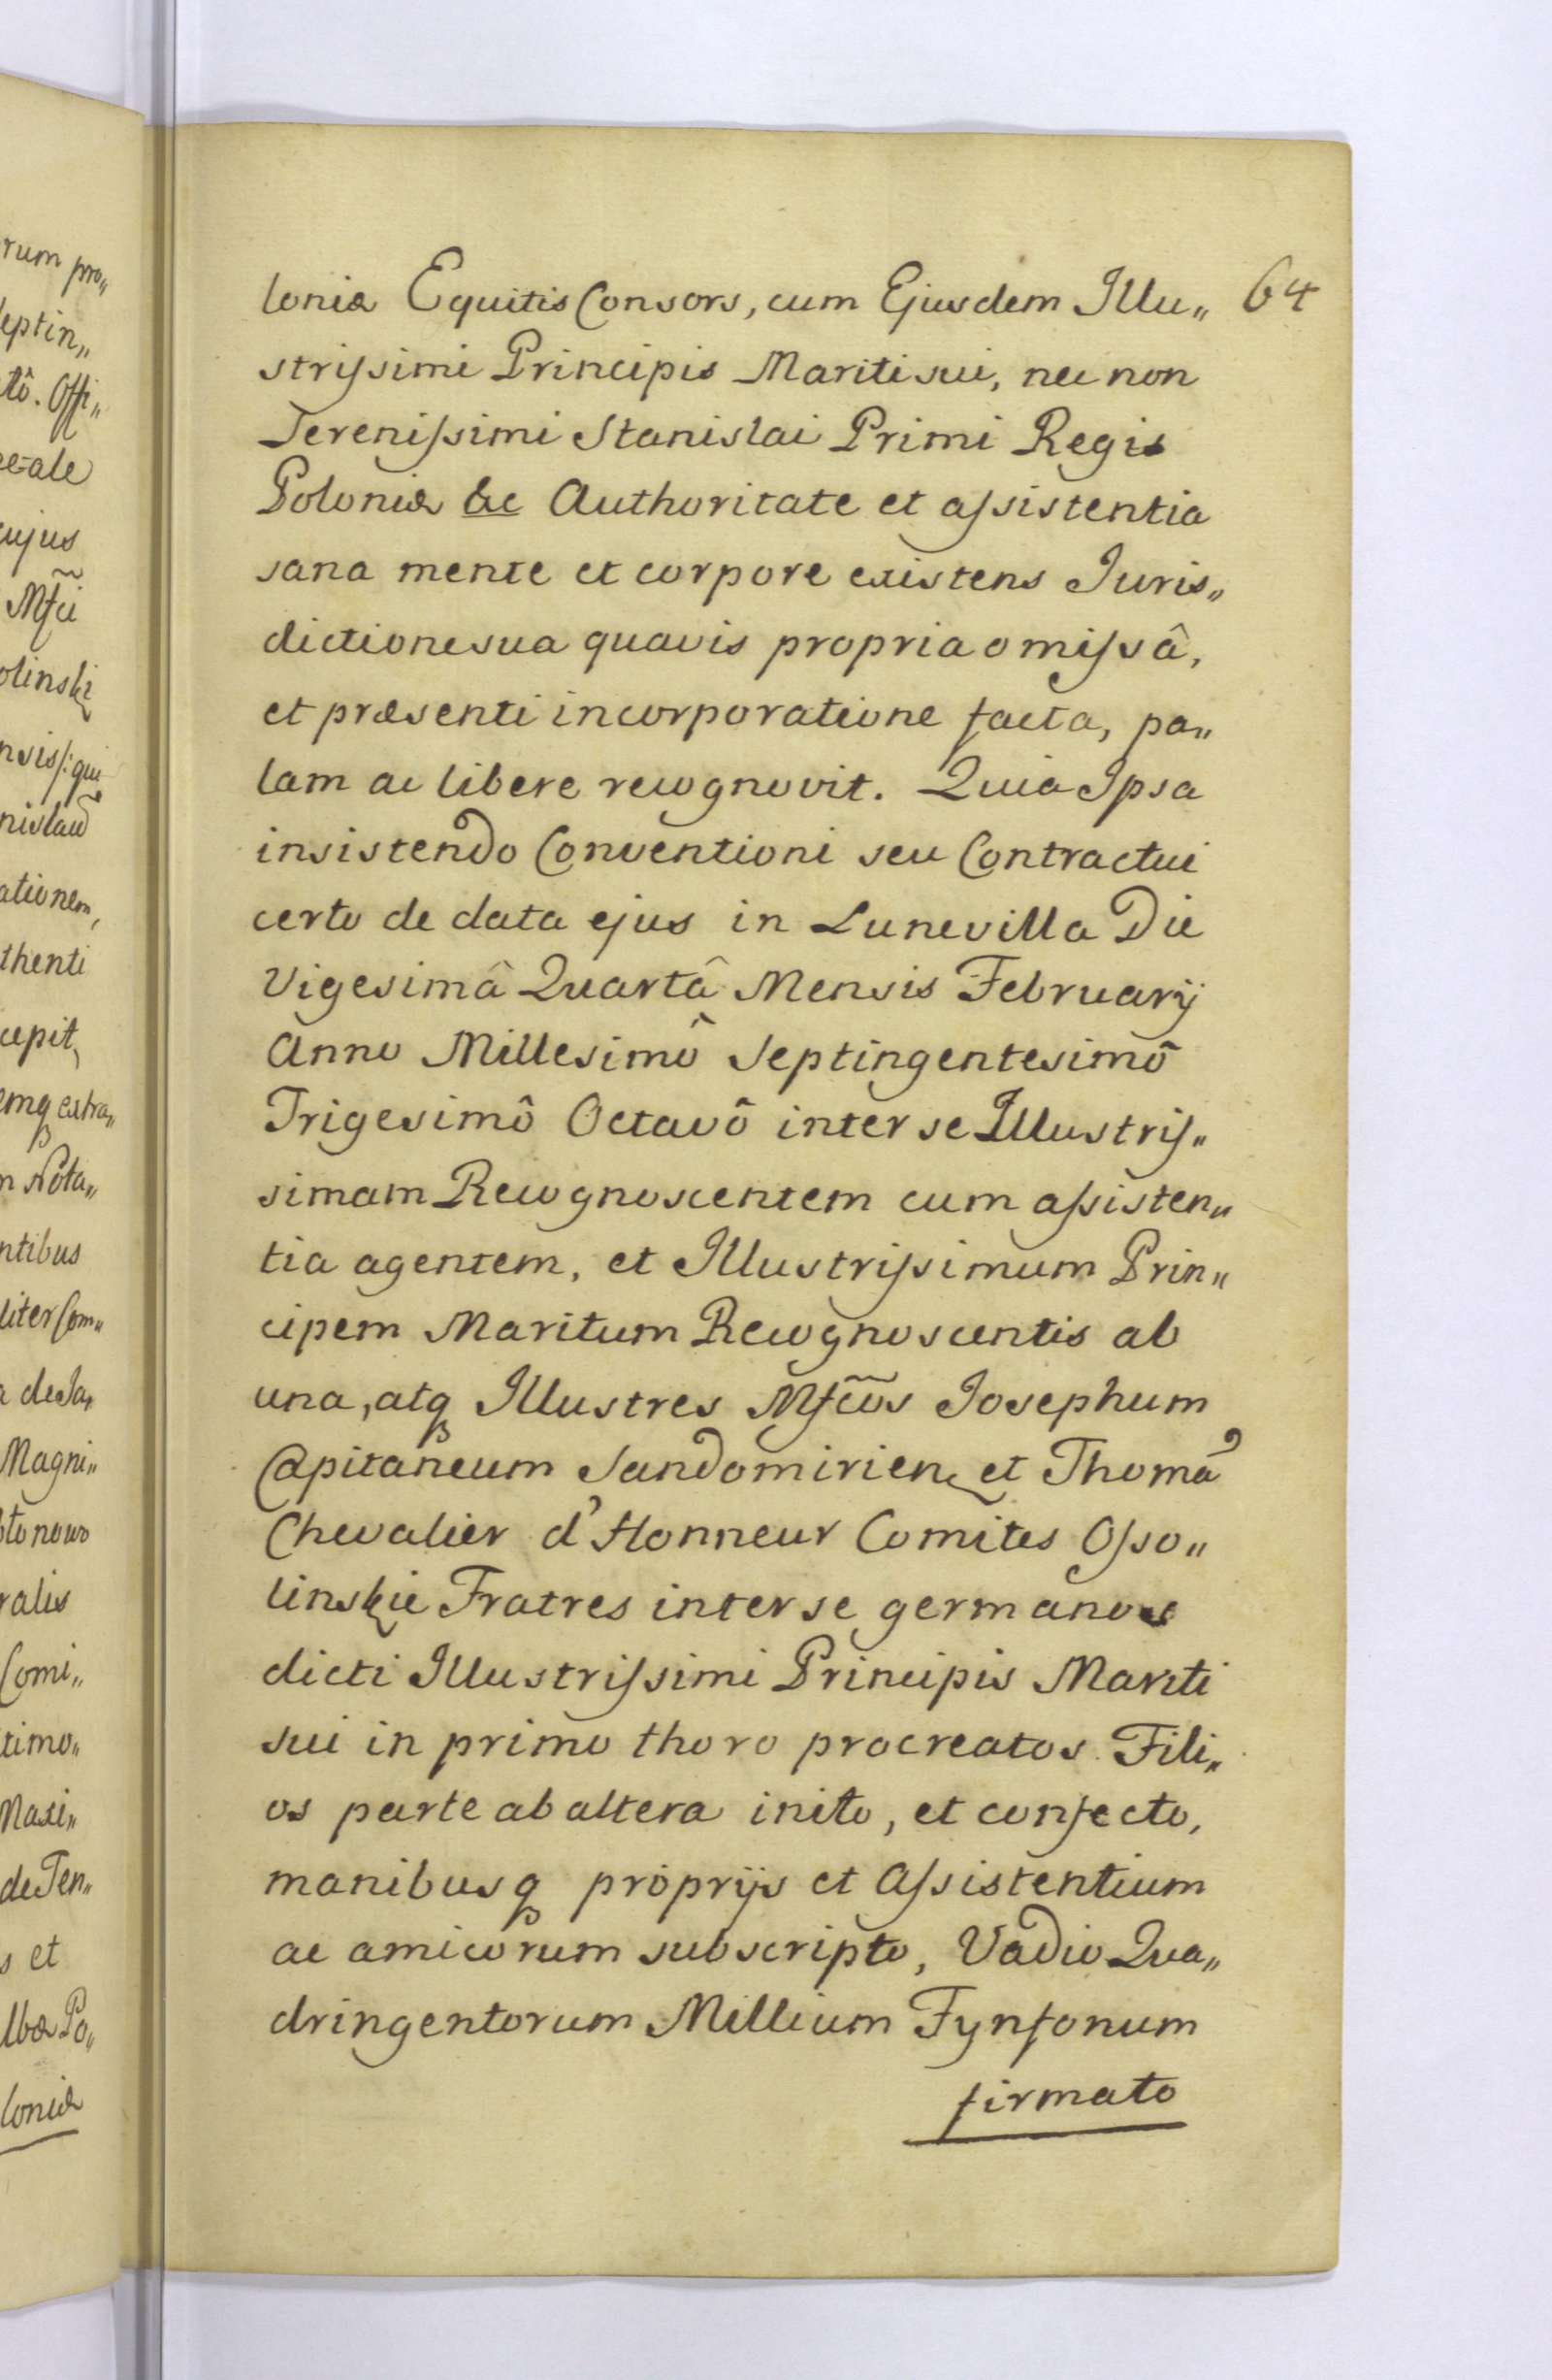 loniæ Equitis Consors, cum Ejusdem Illu„ 64
strissimi Principis Mariti sui, nec non
Serenissimi Stanislai Primi Regis
Poloniæ &c Authoritate et assistentia
sana mente et corpore existens Juris„
dictione sua quavis propria omissâ,
et præsenti incorporatione facta, pa„
lam ac libere recognovit. Quia Ipsa
insistendo Conventioni seu Contractui
certo de data ejus in Lunevilla Die
Vigesimâ Quartâ Mensis Februarij
Anno Millesimô Septingentesimô
Trigesimô Octavô inter se Illustris„
simam Recognoscentem cum assisten„
tia agentem, et Illustrissimum Prin„
cipem Maritum Recognoscentis ab
una, atq Illustres Mfcos Josephum
Capitaneum Sandomirien et Thomã
Chevalier d'Honneur Comites Osso„
linskie Fratres inter se germanos
dicti Illustrissimi Principis Mariti
sui in primo thoro procreatos Fili„
os parte ab altera inito, et confecto,
manibusq proprijs et Assistentium
ac amicorum subscripto, Vadio Qua„
dringentorum Millium Tynfonum
firmato
rum pro„
septin„
tô. Offi„
cujus
Mfci
olinski
nsis/: qui
ationem,
thenti
cepit,
emq extra„
n Nota„
ntibus
liter Com„
a de Ja„
Magni„
ralis
Comi„
timo„
Maxi„
de Ten„
s et
lbæ Po„
loniæ